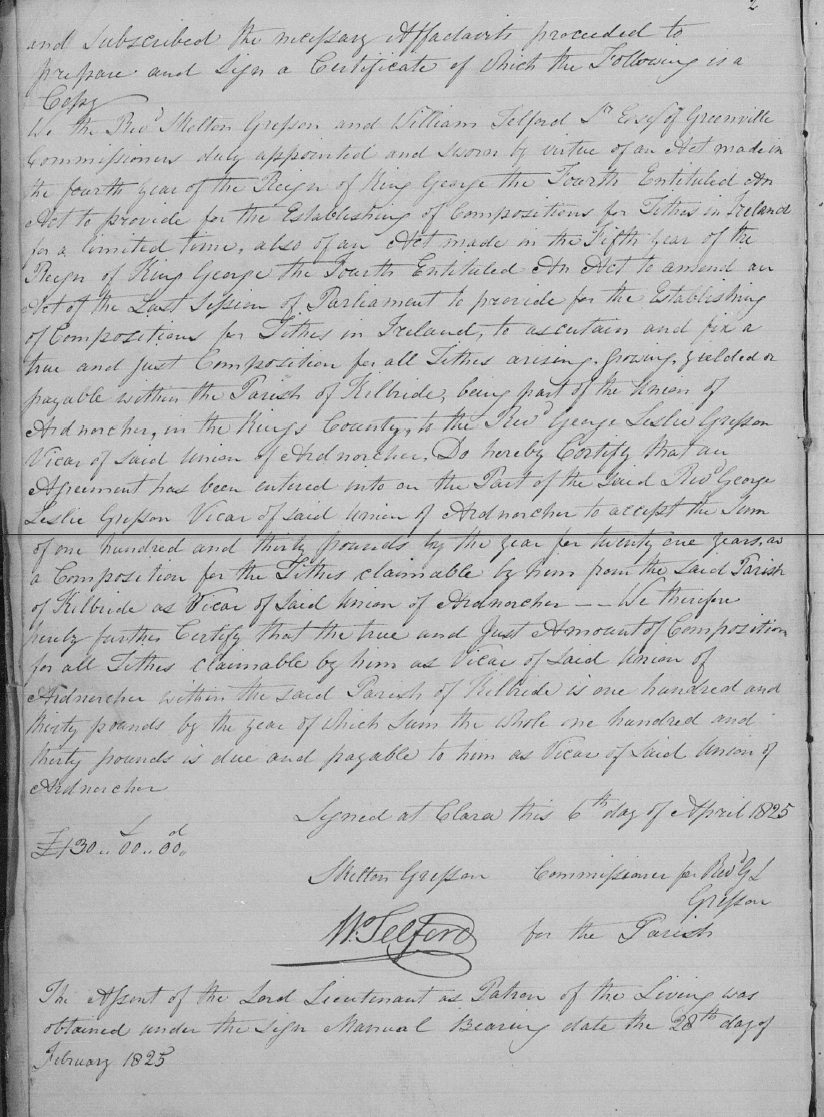 2
and Subscribed the necessary Affadavits proceeded to
prepare and Sign a Certificate of which the Following is a
Copy
We the Revd Skelton Gresson and William Telford Sr Esqr of Greenville
Commissioners duly appointed and sworn by virtue of an Act made in
the fourth year of the Reign of King George the Fourth Entituled An
Act to provide for the Establishing of Compositions for Tithes in Ireland
for a limited time, also of an Act made in the Fifth year of the
Reign of King George the Fourth Entituled An Act to amend an
Act of the Last Session of Parliament to provide for the Establishing
of Compositions for Tithes in Ireland, to ascertain and fix a
true and just Composition for all Tithes arising, growing, yielded or
payable within the Parish of Kilbride, being part of the Union of
Ardnorcher, in the Kings County, to the Revd George Leslie Gresson
Vicar of said Union of Ardnorcher, Do hereby Certify that an
Agreement has been entered into on the Part of the Said Revd George
Leslie Gresson Vicar of said Union of Ardnorcher to accept the Sum
of one hundred and thirty pounds by the year for twenty one years, as
a Composition for the Tithes claimable by him from the said Parish
of Kilbride as Vicar of Said Union of Ardnorcher -- We therefore
hereby further Certify that the true and Just Amount of Composition
for all Tithes claimable by him as Vicar of Said Union of
Ardnorcher within the said Parish of Kilbride is one hundred and
thirty pounds by the year of which Sum the whole one hundred and
thirty pounds is due and payable to him as Vicar of Said Union of
Ardnorcher
Signed at Clara this 6th day of April 1825
£130..00..00d
Skelton Gresson Commissioner for Revd G L
Gresson
Wm Telford for the Parish
The Assent of the Lord Lieutenant as Patron of the Living was
obtained under the Sign Manual Bearing date the 28th day of
February 1825